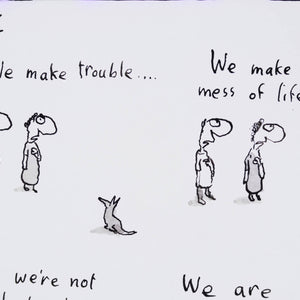 We make trouble....
We make
mess of life
we're not
We are